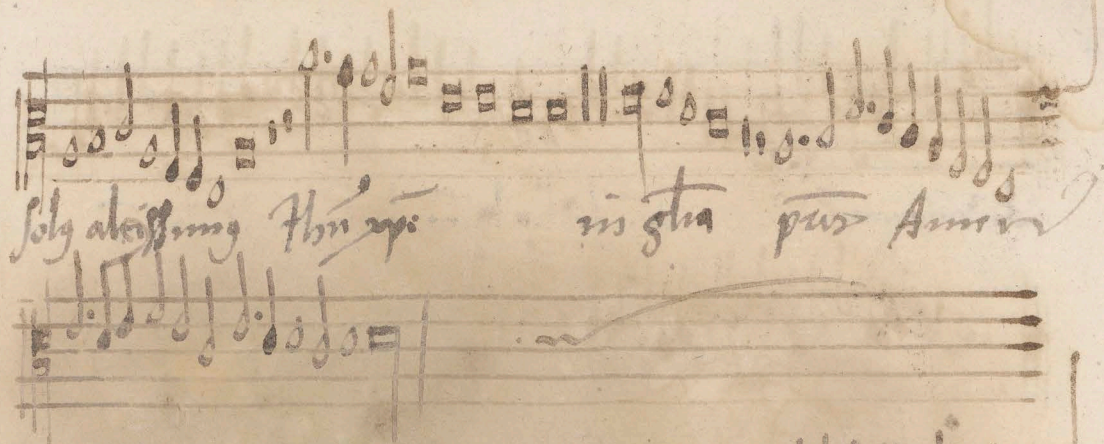 solꝰ altissimꝰ Ihu᷑ xp̄e in gl̄ia pr̄is Amen